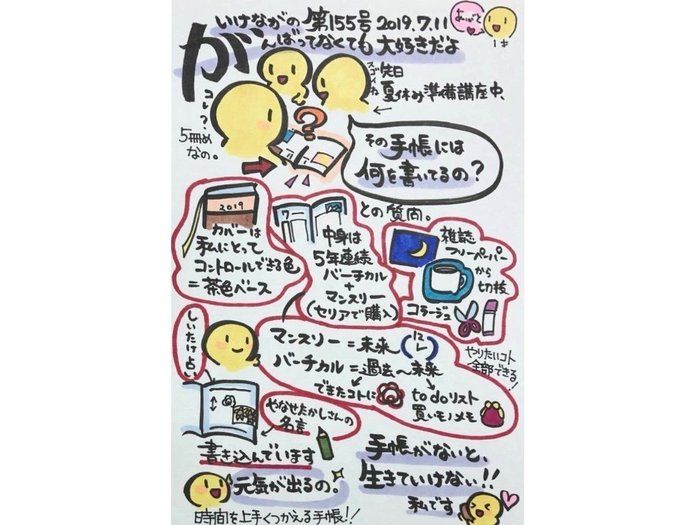 いけながの 第155号 2019.7.11
がんばってなくても 大好きだよ
ありがと
先日
夏休み準備講座中、
コレ？
5冊め
なの。
その手帳には
何を書いてるの？
との質問。
2019
カバーは
私にとって
コントロールできる色
=茶色ベース
7
中身は
5年連続
バーチカル
+
マンスリー
(セリアで購入)
雑誌
フリーペーパー
から
切抜
コラージュ
しいたけ占い
マンスリー=未来
バーチカル=過去〜未来
できたコトに
to doリスト
買いモノメモ
やりたいコト
全部できる!
やなせたかしさんの
名言
書き込んでいます
元気が出るの。
時間を上手くつかえる手帳!!
手帳がないと、
生きていけない!!
私です